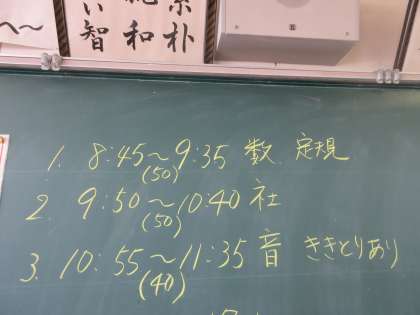 い智
和
素朴
1. 8:45～9:35 数 定規
(50)
2. 9:50～10:40 社
(50)
3. 10:55～11:35 音 ききとりあり
(40)